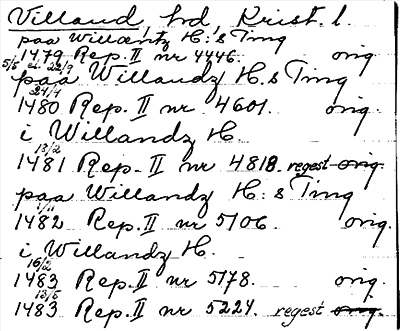 Villand, hd, Krist. l.
paa Willandz H:s Ting
1479 5/5 el. 22/9 Rep. II nr 4446. orig.
paa Willandz H.s Ting
1480 24/4 Rep. II nr 4601. orig.
i Willandz H.
1481 13/2 Rep. II nr 4818. regest orig.
paa Willandz H:s Ting
1482 1/11 Rep. II nr 5106. orig.
i Willandz H.
1483 16/2 Rep. II nr 5178. orig.
1483 13/5 Rep. II nr 5224. regest orig.